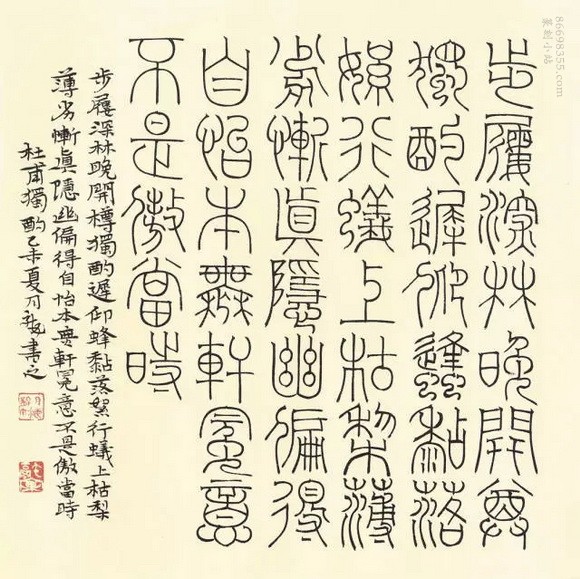 步屧深林晚開尊
獨酌遲仰蜂黏落
絮行蟻上枯棃薄
劣慚眞隱幽偏得
自怡本無軒冕意
不是傲當時
步屧深林晚開樽獨酌遲仰蜂黏落絮行蟻上枯梨
薄劣慚眞隱幽偏得自怡本無軒冕意不是傲當時
杜甫獨酌乙未夏書之
86698355.com